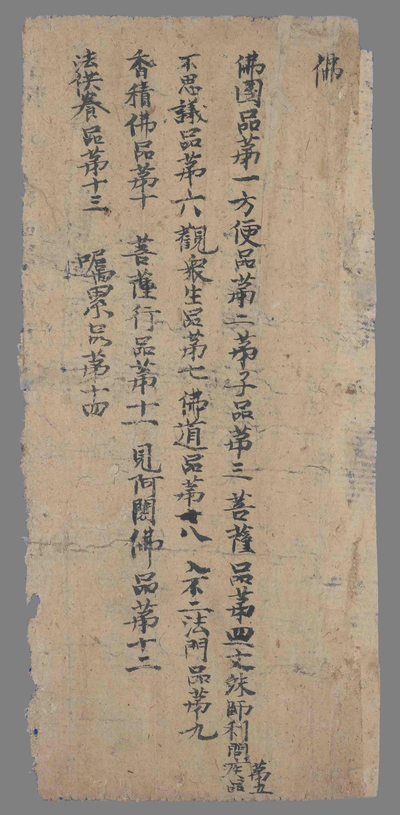 佛
佛國品第一方便品第二弟子品第三菩薩品第四文殊師利問疾品第五
不思議品第六觀衆生品第七佛道品第十八入不二法門品第九
香積佛品第十 菩薩行品第十一見阿閦佛品第十二
法供養品第十三 囑累品第十四